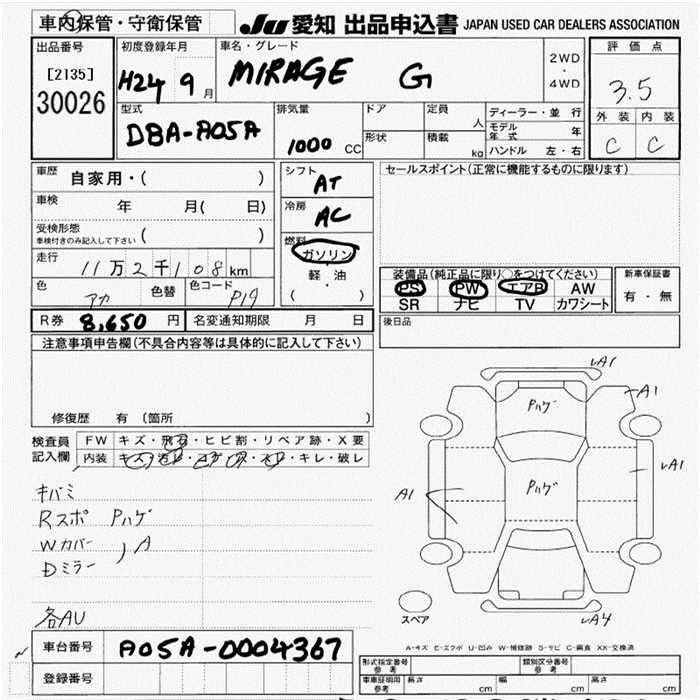 車内保管・守衛保管
JU 愛知 出品申込書 JAPAN USED CAR DEALERS ASSOCIATION
出品番号
[2135]
30026
初度登録年月
H24 9月
車名・グレード
MIRAGE G
2WD
・
4WD
評価点
3.5
外装 内装
C C
型式
DBA-A05A
排気量
1000 CC
ドア
形状
定員 人
積載 kg
ディーラー・並行
モデル年式 年
ハンドル 左・右
車歴
自家用・( )
車検
年 月( 日)
受検形態
車検付きのみ記入して下さい ( )
走行
11万2千108km
色
アカ
色替
色コード
P19
シフト
AT
冷房
AC
燃料
ガソリン
軽・油
( )
セールスポイント(正常に機能するものに限ります)
装備品(純正品に限り○をつけてください)
PS PW エアB AW
SR ナビ TV カワシート
新車保証書
有・無
後日品
R券 8,650 円 名変通知期限 月 日
注意事項申告欄(不具合内容等は具体的に記入して下さい)
修復歴 有 (箇所 )
検査員
記入欄
FW キズ・飛石・ヒビ割・リペア跡・X要
内装 キズ・汚レ・コゲ・穴・スレ・キレ・破レ
キバミ
Rスポ Pハゲ
Wカバー
Dミラー ) A
各AU
A1
A1
Pハゲ
Pハゲ
A1
A1
A4
スペア
車台番号 A05A-0004367
登録番号
A-キズ E-エクボ U-凹み W-補修跡 S-サビ C-腐食 XX-交換済
形式指定番号
参考
類別区分番号
参考
車車証明用
参考
長さ cm
幅 cm
高さ cm